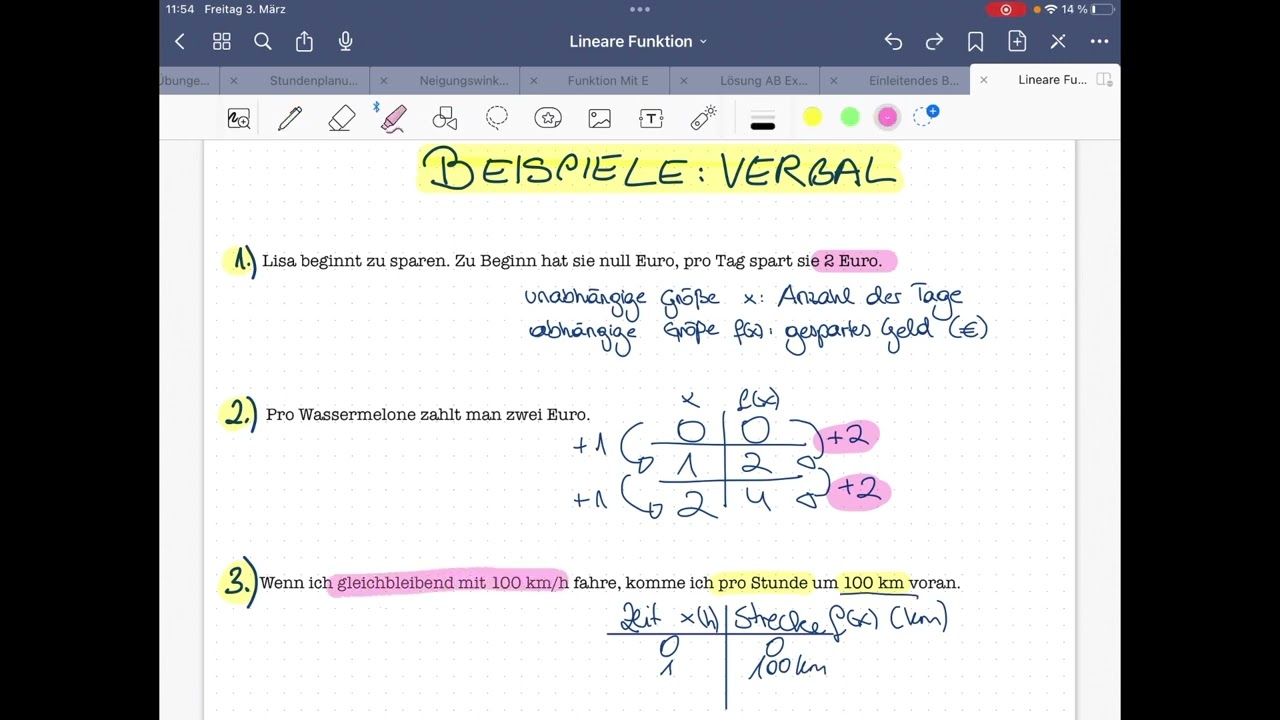 11:54 Freitag 3. März
14 %
Lineare Funktion
Übunge... Stundenplanu... Neigungswink... Funktion Mit E Lösung AB Ex... Einleitendes B... Lineare Fu...
BEISPIELE: VERBAL
1.) Lisa beginnt zu sparen. Zu Beginn hat sie null Euro, pro Tag spart sie 2 Euro.
unabhängige Größe x: Anzahl der Tage
abhängige Größe f(x): gespartes Geld (€)
2.) Pro Wassermelone zahlt man zwei Euro.
x f(x)
0 0
+1 +2
1 2
+1 +2
2 4
3.) Wenn ich gleichbleibend mit 100 km/h fahre, komme ich pro Stunde um 100 km voran.
Zeit x(h) Strecke f(x) (km)
0 0
1 100km